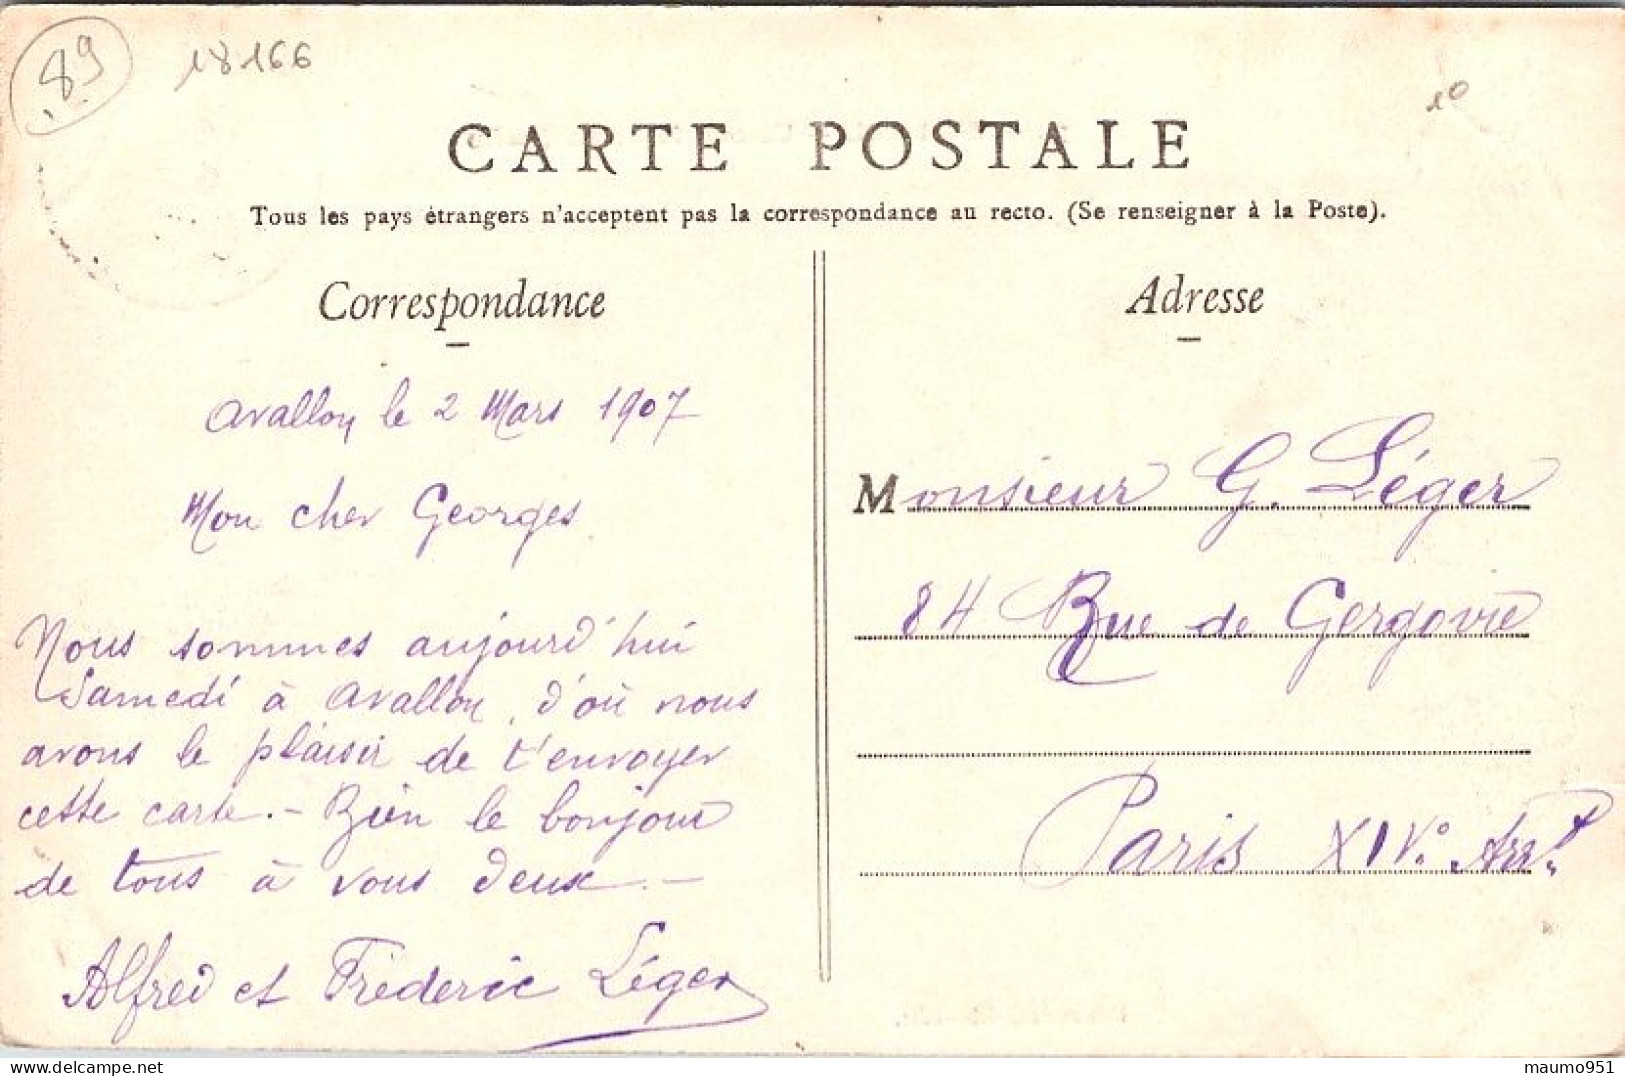 89
18166
10
CARTE POSTALE
Tous les pays étrangers n'acceptent pas la correspondance au recto. (Se renseigner à la Poste).
Correspondance
Avallon le 2 Mars 1907
Mon cher Georges
Nous sommes aujourd'hui
Samedi à Avallon, d'où nous
avons le plaisir de t'envoyer
cette carte. – Bien le bonjour
de tous à vous deux. –
Alfred et Frédéric Léger
Adresse
Monsieur G. Léger
84 Rue de Gergovie
Paris XIVe. Arrt.
maumo951